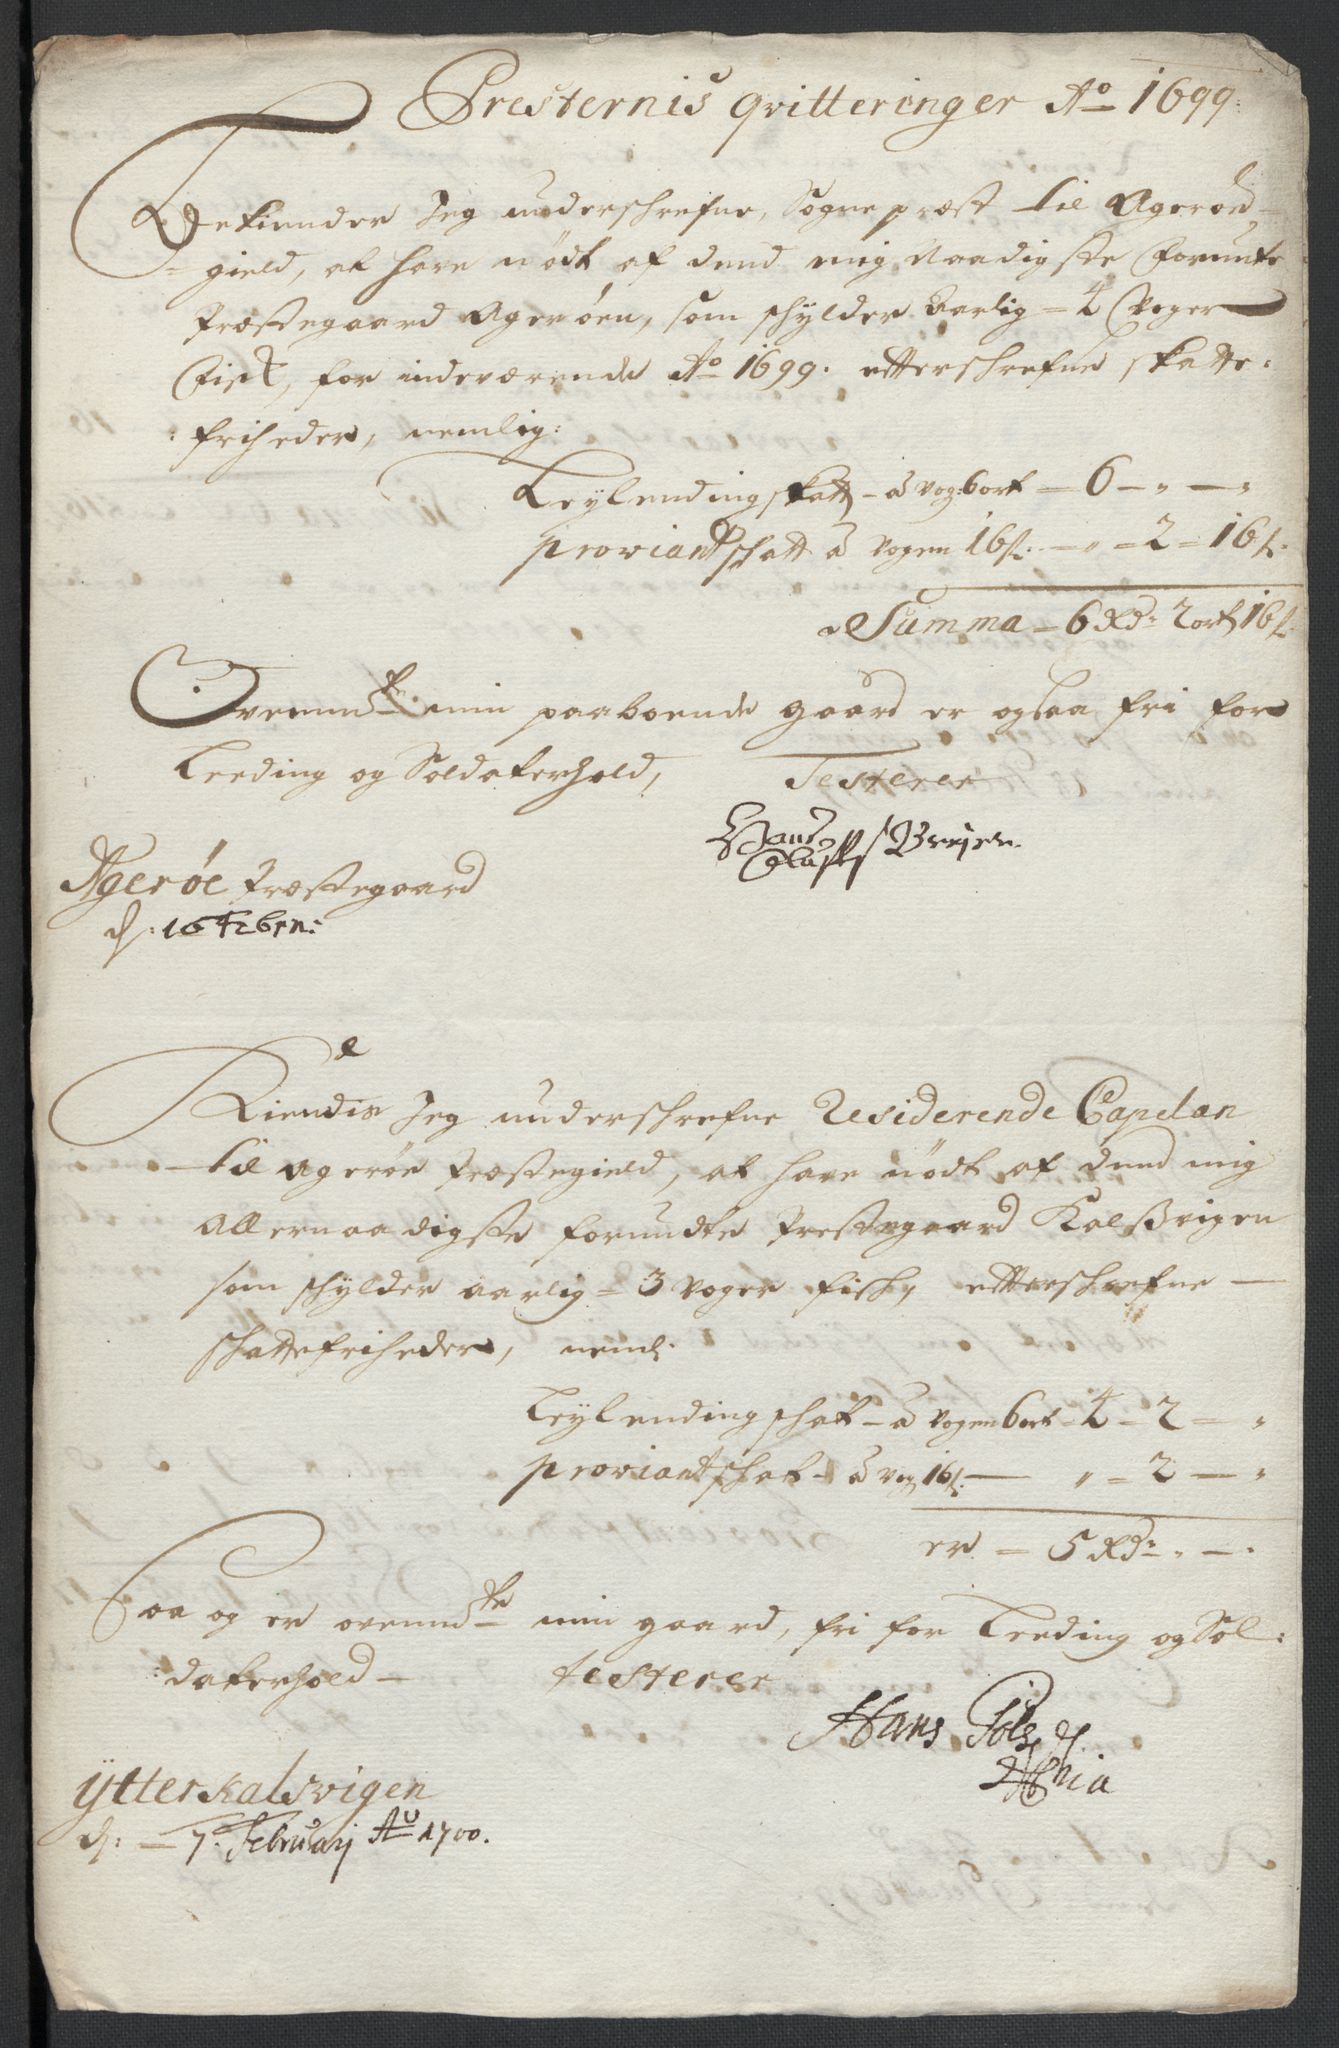 Presternis qvitteringer Ao 1699:
Bekiender Jeg underschrefne, Sogne præst til Agerøe
= gield, at have nødt af dend mig Naadigste Forundte
Præstegaard Agerøen, som schylder Aarlig = 4 Voger
Fisk, for indeværende Ao 1699. efterschrefne skatte:
: friheder, nemlig:
Leylending skatt – a vog: 6 ort – 6 – " – "
proviant schatt a vogen 16 s: – " = 2 = 16 s:
Summa = 6 Rd: 2 ort 16 s:
Ovenmelte min paaboende gaard er ogsaa fri for
Leding og Soldaterhold,
Testerer
Hans
Agerøe Præstegaard
d: 16 Febru:
Kiendis Jeg underschrefne Residerende Capelan
til Agerøe Præstegield, at have nødt af dend mig
Allernaadigste forundte Prestegaard Kalsvigen
som schylder aarlig = 3 voger fisk, efterschrefne –
schattefriheder, neml:
Leylending schat – a vogen 6 ort = 4 – 2 = "
proviant schat – a vog 16 s: – " = 2 – "
er = 5 Rd: " – "
Saa og er ovenmelte min gaard, fri for Leding og Sol:
:daterhold –
testerer
Hans
Ytter Kalsvigen
d: – 7. Februarij Ao 1700.